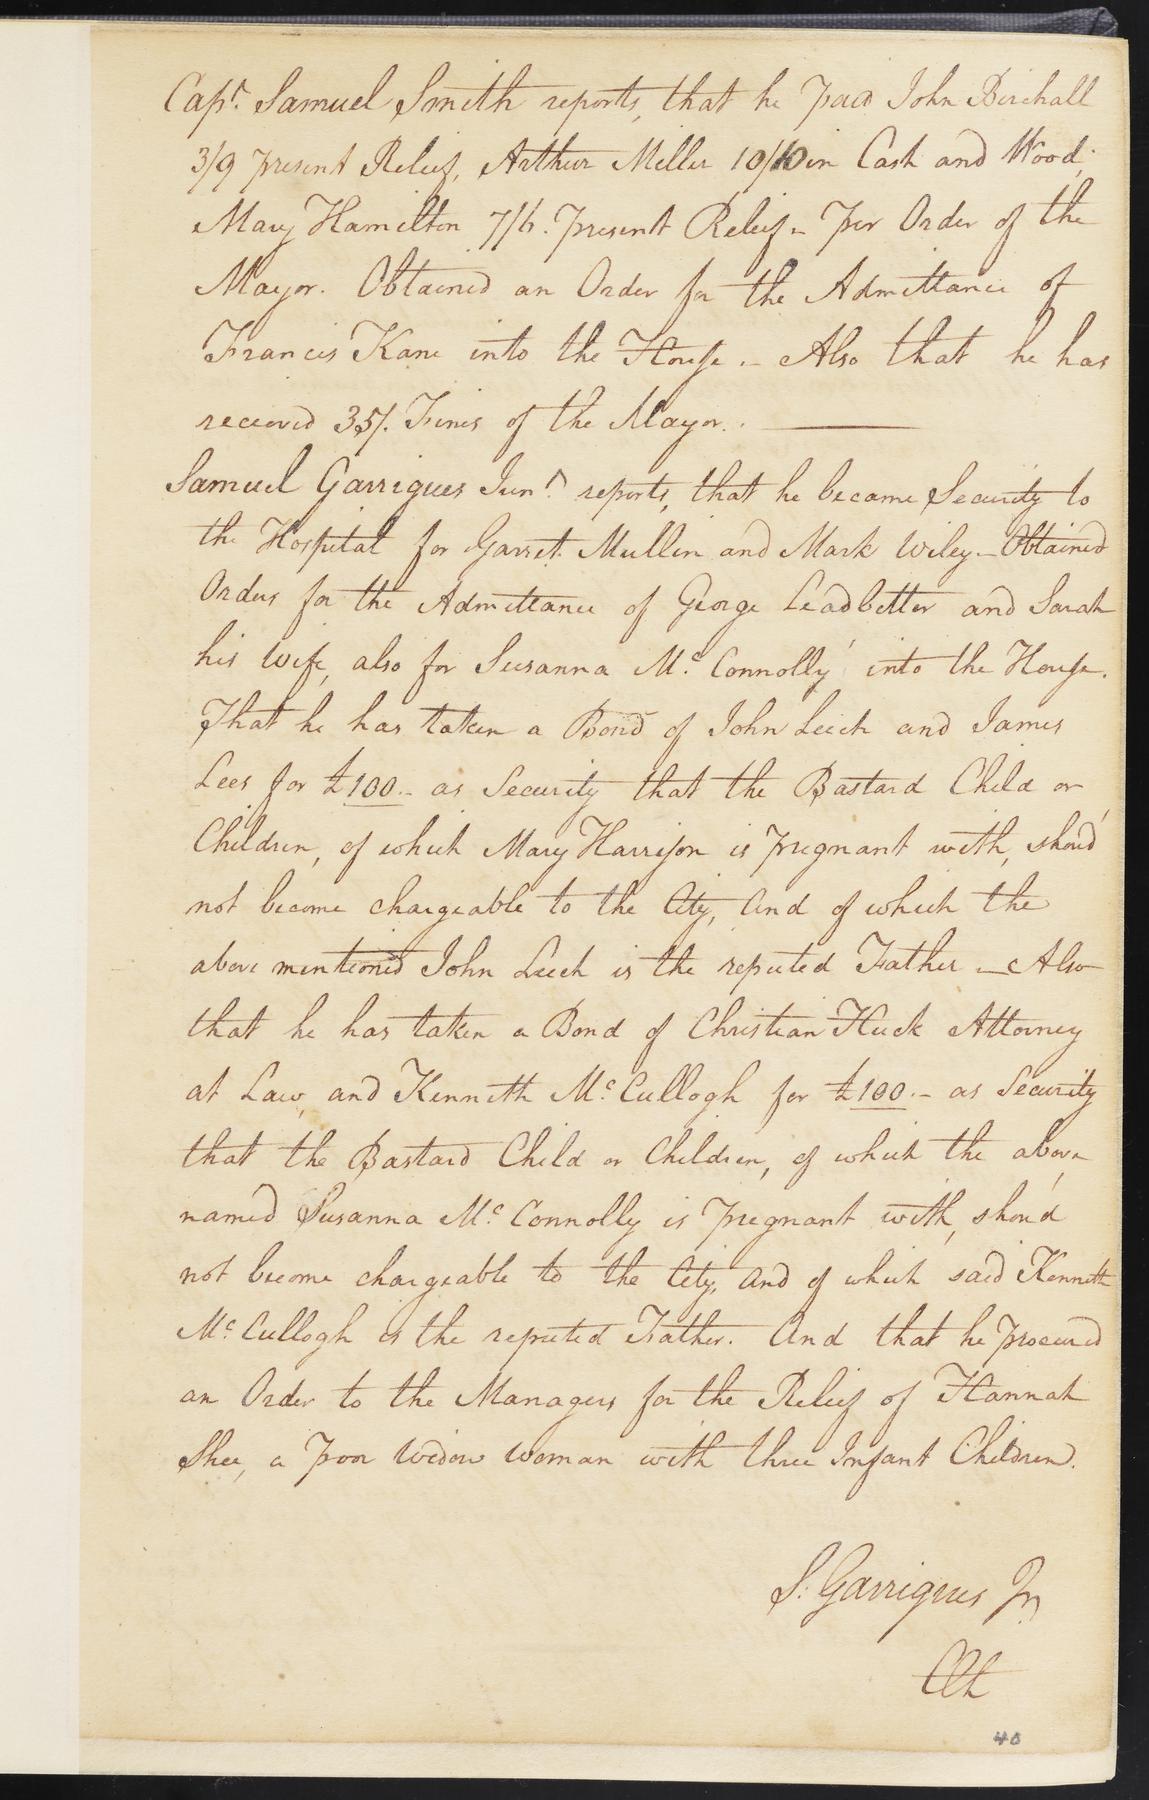 Capt. Samuel Smith reports, that he paid John Birchall
3/9 present Relief, Arthur Miller 10/10 in Cash and Wood,
Mary Hamilton 7/6. present Relief – Per Order of the
Mayor. Obtained an Order for the Admittance of
Francis Kane into the House. – Also that he has
received 35/. Fines of the Mayor. .
Samuel Garrigues Junr. reports, that he became Security to
the Hospital for Garret Mullin and Mark Wiley – Obtained
Orders for the Admittance of George Leadbetter and Sarah
his Wife, also for Susanna Mc. Connolly into the House.
That he has taken a Bond of John Leech and James
Lees for £100.– as Security that the Bastard Child or
Children, of which Mary Harrison is pregnant with, shou'd
not become chargeable to the City, and of which the
above mentioned John Leech is the reputed Father – Also
that he has taken a Bond of Christian Huck Attorney
at Law, and Kenneth Mc. Cullogh for £100.– as Security
that the Bastard Child or Children, of which the above
named Susanna Mc. Connolly is pregnant with, shou'd
not become chargeable to the City, and of which said Kenneth
Mc. Cullogh is the reputed Father. And that he procured
an Order to the Managers for the Relief of Hannah
Shee, a poor Widow Woman with three Infant Children.
S. Garrigues Jr
Clk
40